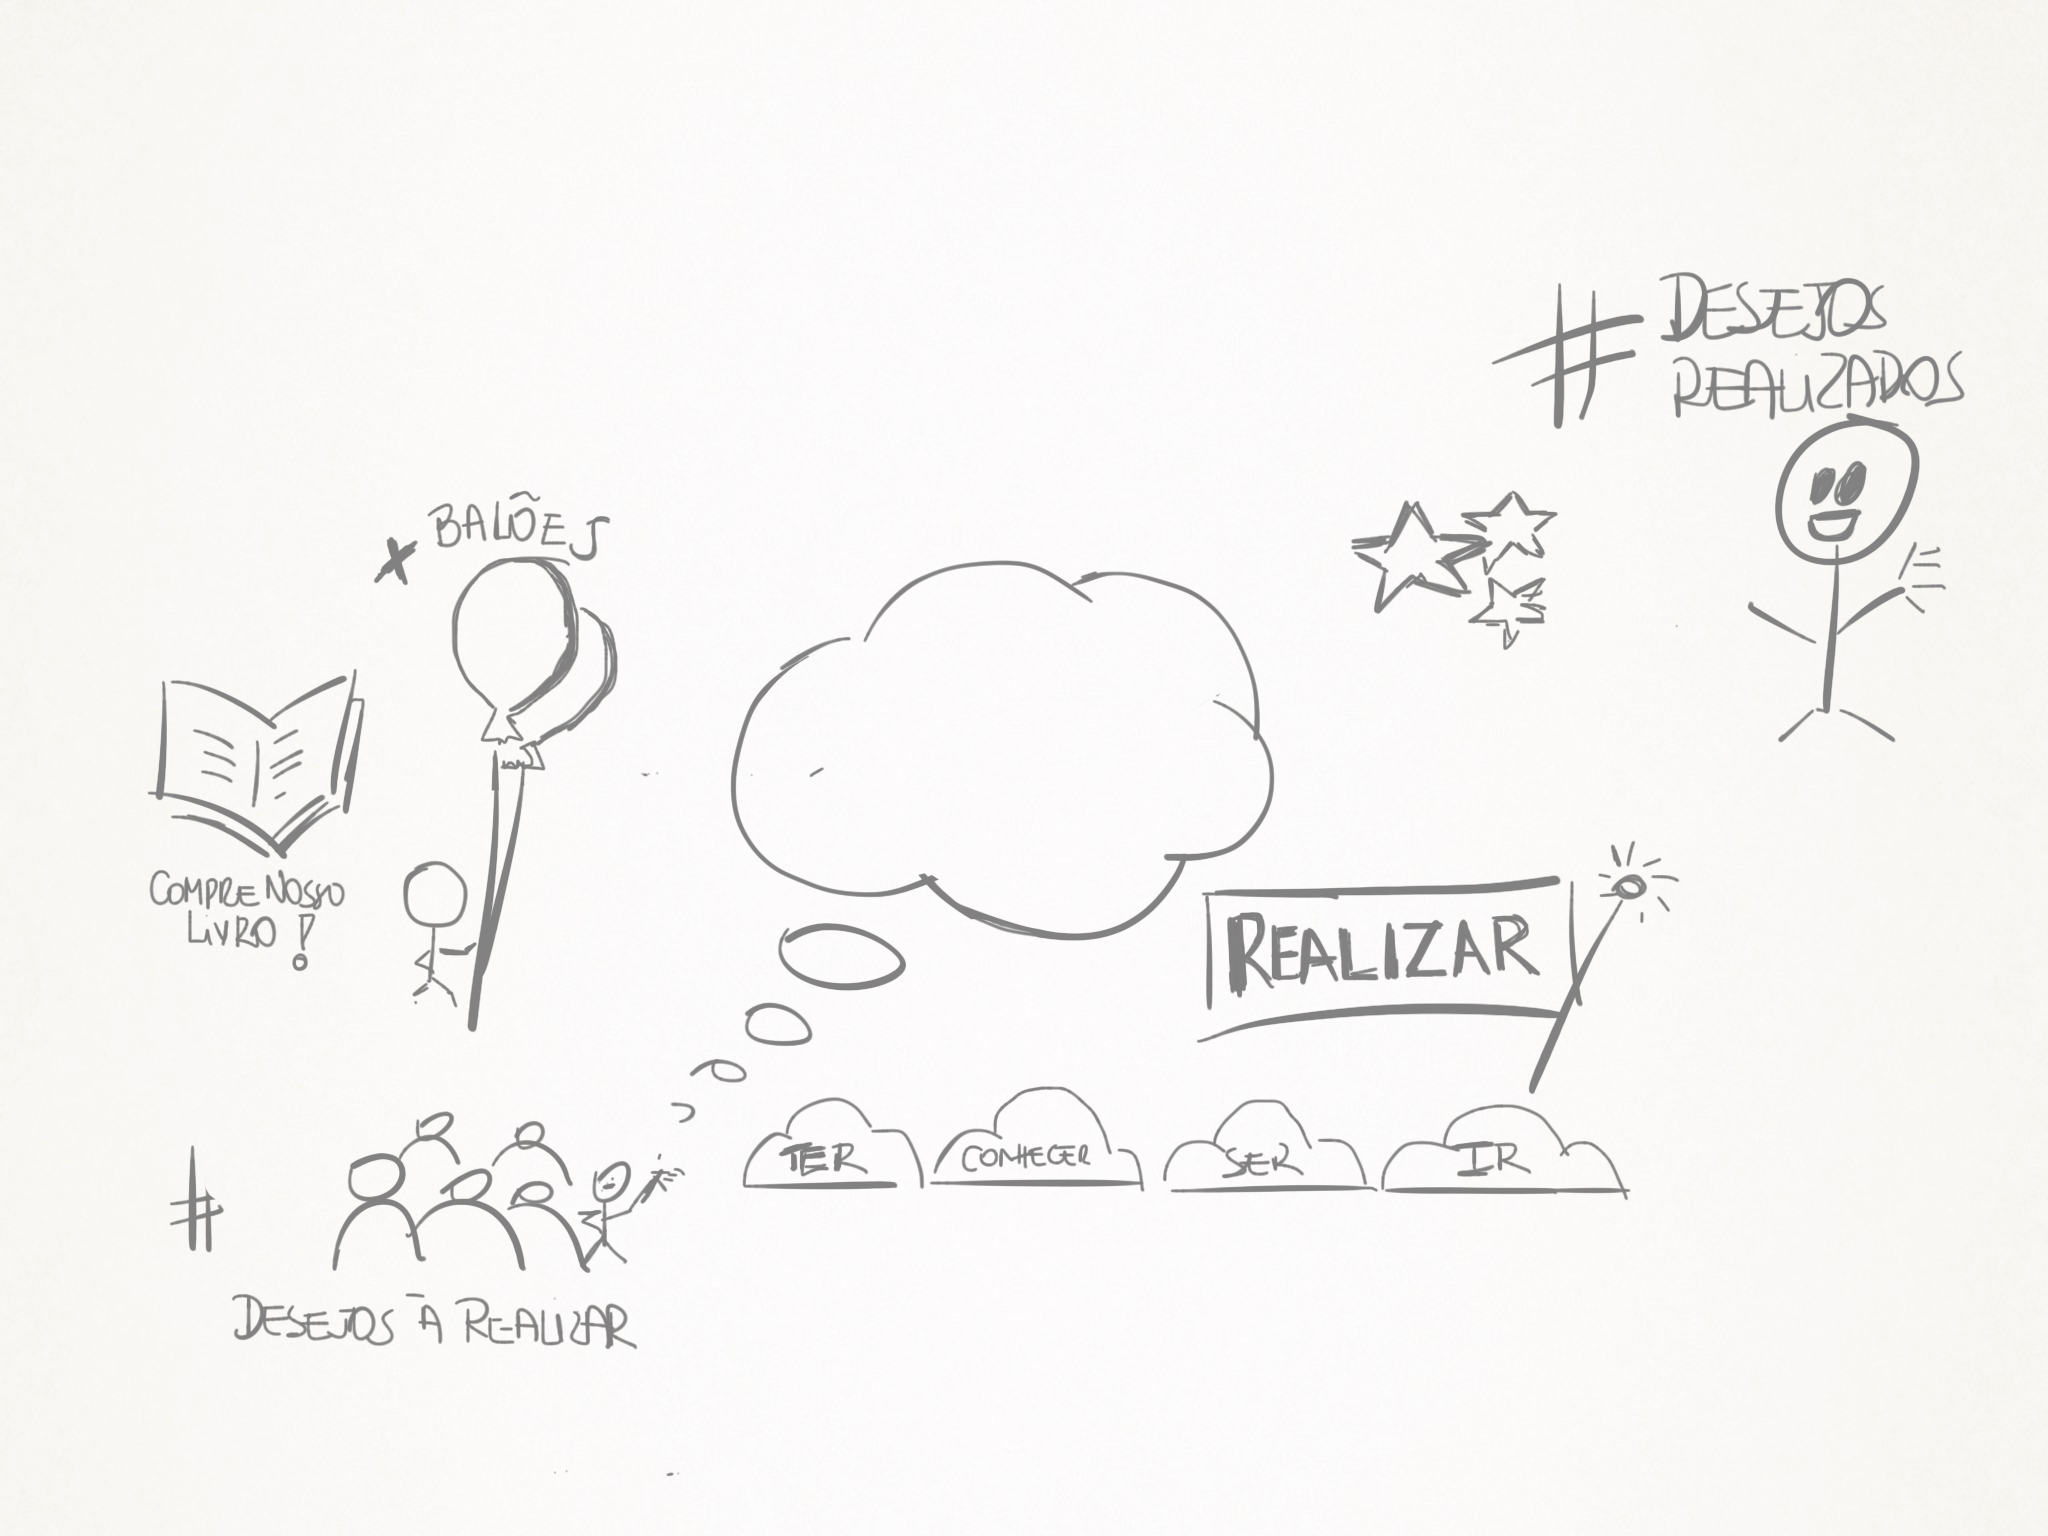 # DESEJOS
REALIZADOS
x BALÕES
COMPRE NOSSO
LIVRO!
REALIZAR
TER
CONHECER
SER
IR
#
DESEJOS A REALIZAR